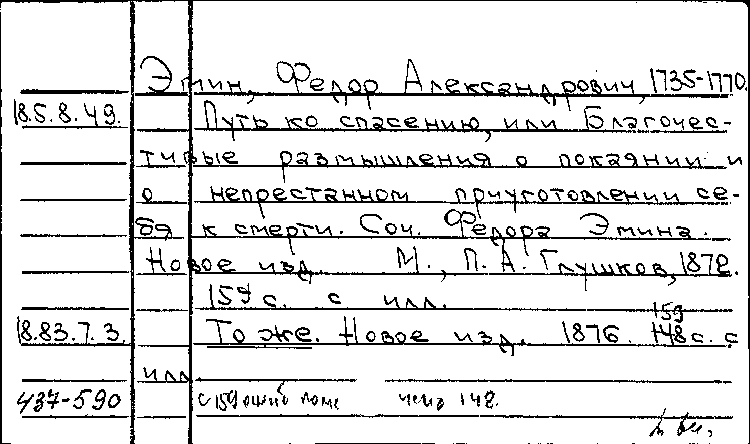 Эмин, Федор Александрович, 1735-1770.
18.5.8.49. Путь ко спасению, или Благочес-
тивые размышления о покаянии и
о непрестанном приуготовлении се-
бя к смерти. Соч. Федора Эмина.
Новое изд. М., П. А. Глушков, 1872.
159 с. с илл.
159
18.83.7.3. То же. Новое изд. 1876. 148 с. с
илл.
437-590 с 159 ошиб
148.